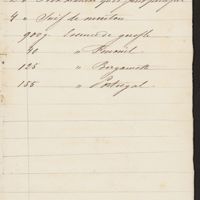 4 " Suif de mouton
900 g. Essence de girofle
40 " Fenouil
125 " Bergamotte
155 " Portugal